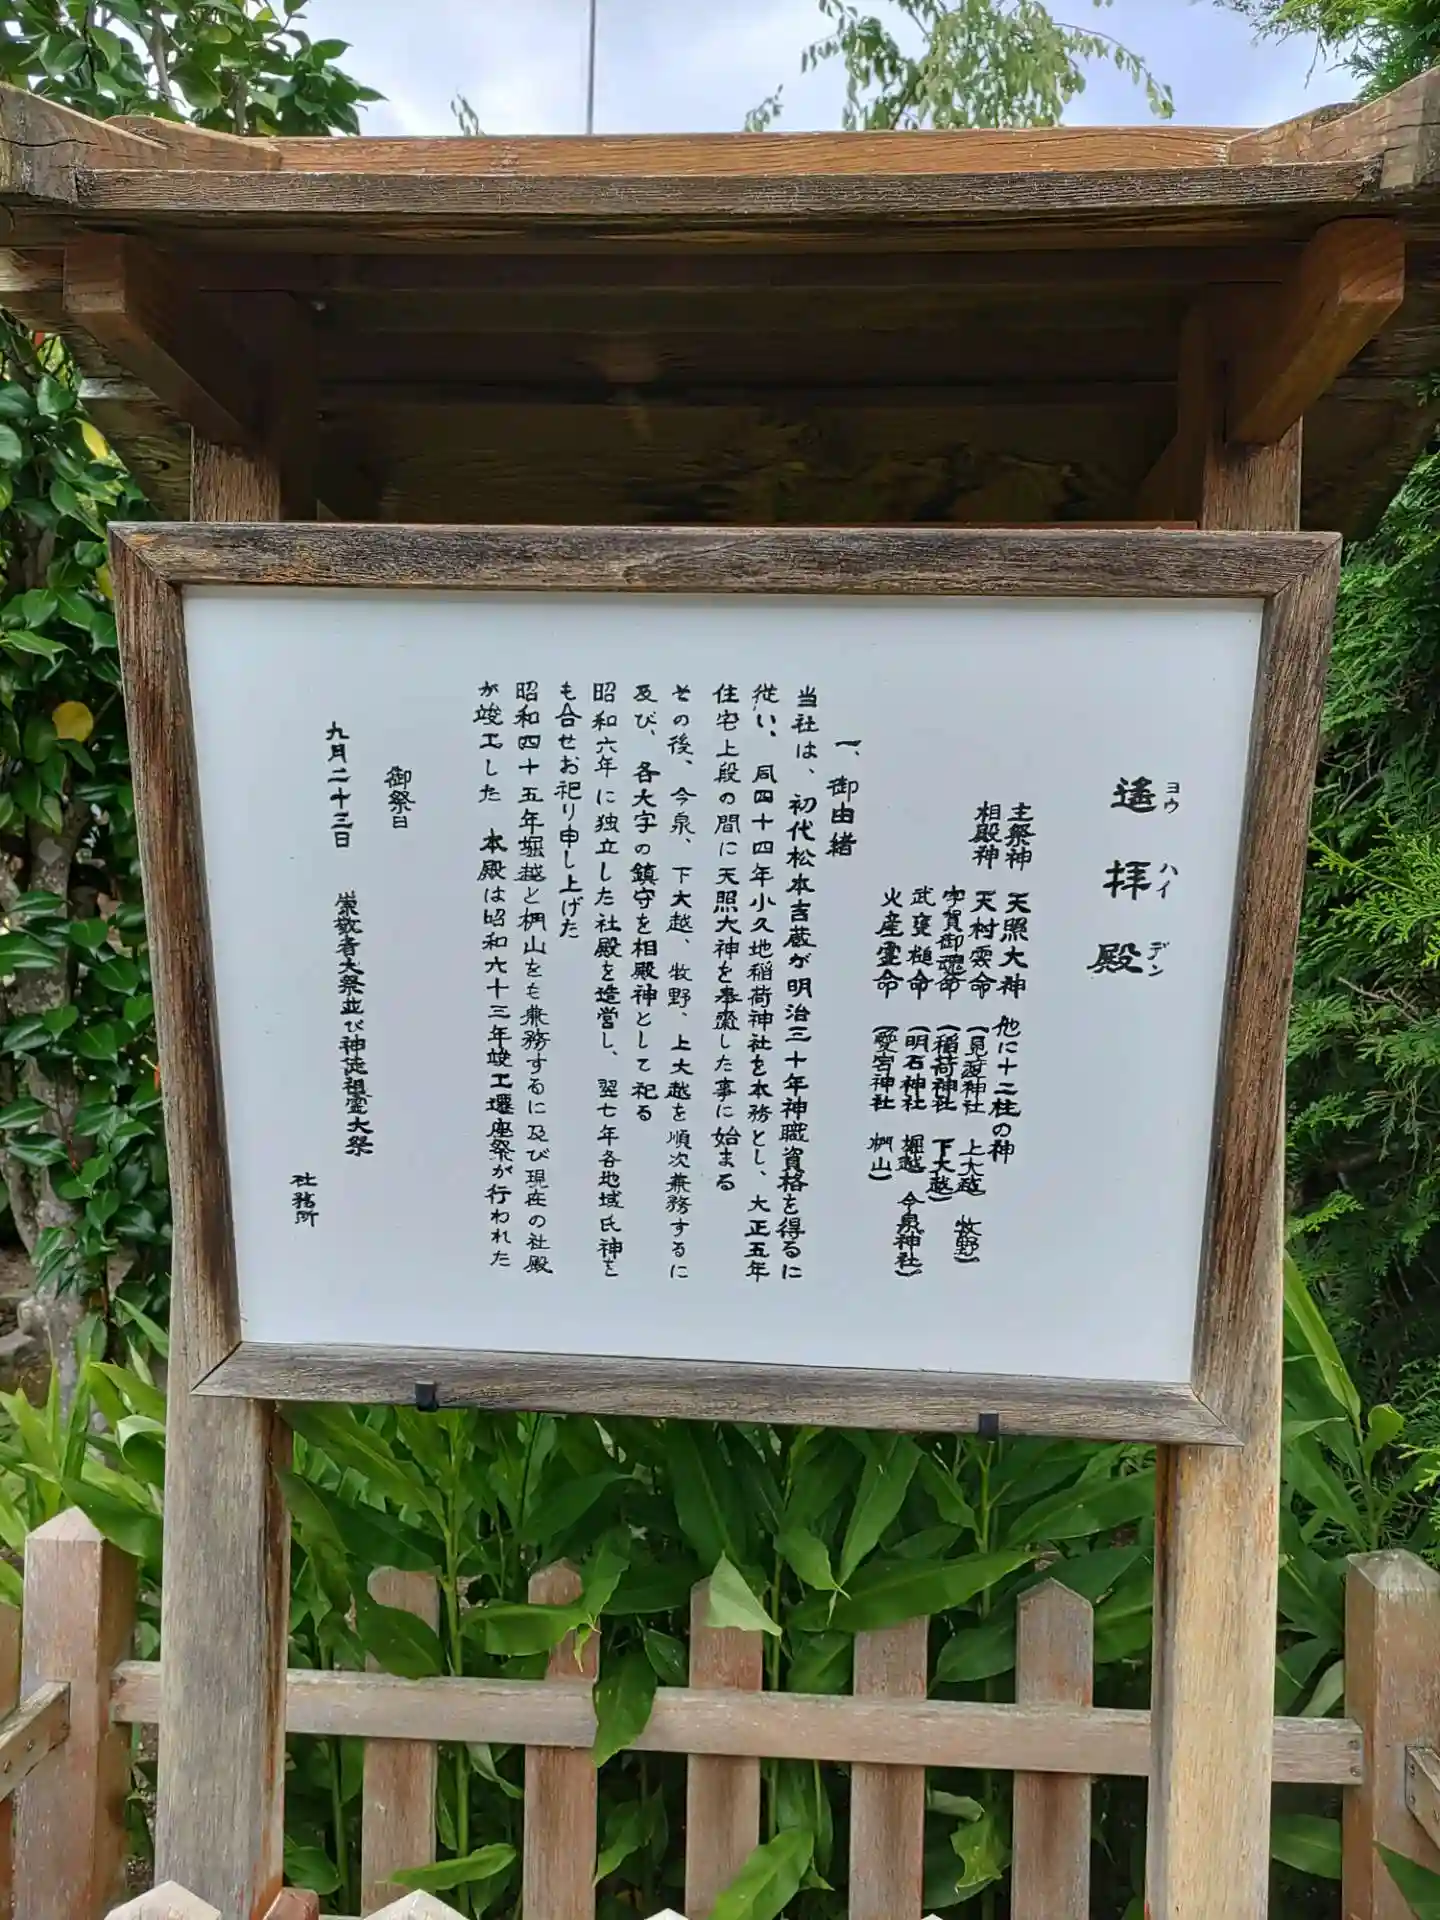 遙拝殿
ヨウ ハイ デン
主祭神 天照大神 他に十二柱の神
相殿神 天村雲命 (見渡神社 上大越 牧野)
宇賀御魂命 (稲荷神社 下大越)
武甕槌命 (明石神社 堀越 今泉神社)
火産霊命 (愛宕神社 椚山)
一、御由緒
当社は、初代松本吉蔵が明治三十年神職資格を得るに
従い、同四十四年小久地稲荷神社を本務とし、大正五年
住宅上段の間に天照大神を奉齋した事に始まる
その後、今泉、下大越、牧野、上大越を順次兼務するに
及び、各大字の鎮守を相殿神として祀る
昭和六年に独立した社殿を造営し、翌七年各地域氏神を
も合せお祀り申し上げた
昭和四十五年堀越と椚山をも兼務するに及び現在の社殿
が竣工した 本殿は昭和六十三年竣工遷座祭が行われた
御祭日
九月二十三日 崇敬者大祭並び神徒祖霊大祭
社務所